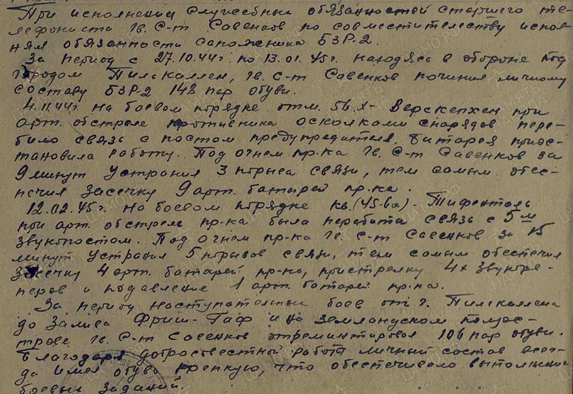 При исполнении служебных обязанностей старшего те-
лефониста гв. С-т Савенков по совместительству испол-
нял обязанности сапожника БЗР-2.
За период с 27.10.44г по 13.01.45г. находясь в обороне под
городом Пилькаллен, гв. С-т Савенков починил личному
составу БЗР-2 148 пар обуви.
4.11.44г на боевом порядке отм. 56.8 - Верскепхен при
арт. обстреле противника осколками снарядов пере-
било связь с постом предупредителя, батарея приос-
тановила работу. Под огнем пр-ка гв. С-т Савенков за
9 минут устранил 3 порыва связи, тем самым обес-
печил засечку 9 арт. батарей пр-ка.
12.02.45г. на боевом порядке кв. (45-6а) - Тифенталь
при арт. обстреле пр-ка была перебита связь с 5м
звукопостом. Под огнем пр-ка гв. С-т Савенков за 15
минут устранил 5 порывов связи, тем самым обеспечил
засечку 4 арт. батарей пр-ка, пристрелку 4х звукоре-
перов и подавление 1 арт. батареи пр-ка.
За период наступательных боев от г. Пилькаллена
до залива Фриш-Гаф и на Земландском полуос-
трове гв. С-т Савенков отремонтировал 106 пар обуви.
Благодаря добросовестной работе личный состав всег-
да имел обувь крепкую, что обеспечивало выполнение
боевых заданий.